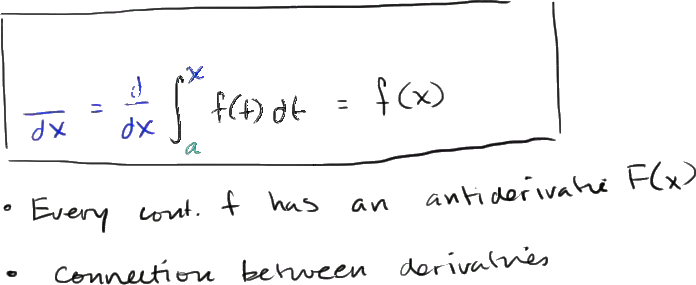 /dx = d/dx ∫_a^x f(t) dt = f(x)
• Every cont. f has an antiderivative F(x)
• connection between derivatives